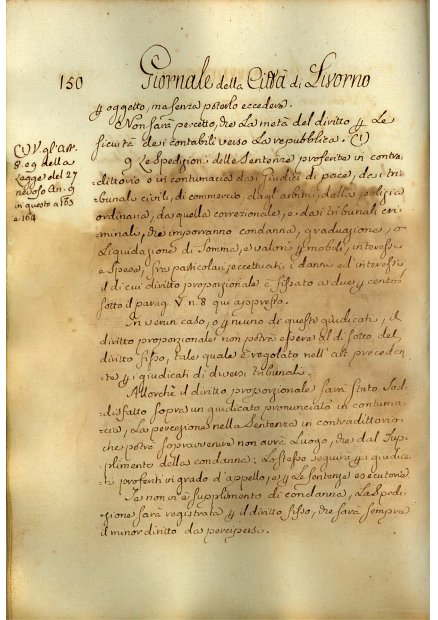 150 Giornale della Città di Livorno
ꝑ oggetto, ma senza poterlo eccedere.
Non sarà percetto, che la metà del diritto ꝑ Le
sicurtà dei contabili verso La repubblica. (1)
(1) V. gl'art.
8. e 9. della
Legge del 27
nevoso An. 9
in questo a 163
e 164
9 Le Spedizioni delle Sentenze proferite in contra-
-dittorio o in contumacia dai Giudici di pace, dai tri-
-bunali civili, di commercio, dagl'arbitri, dalla polizia
ordinaria, da quella correzionale, e dai tribunali cri-
-minali, che imporranno condanna, graduazione, o
Liquidazione di Somma, e valori ꝑ mobili, interessi
e Spese, fra particolari, eccettuati i danni ed interessi
il di cui diritto proporzionale è fissato a due ꝑ cento,
sotto il parag. V. n. 8 qui appresso.
In verun caso, e ꝑ niuno di questi giudicati, il
diritto proporzionale non potrà essere al di sotto del
diritto fisso, tale quale è regolato nell'art. preceden-
te ꝑ i giudicati di diversi tribunali.
Allorchè il diritto proporzionale sarà stato Sod-
-disfatto sopra un giudicato pronunciato in contuma-
-cia, La percezione nella Sentenza in contradittorio
che potrà sopravvenire non avrà Luogo, che dal Sup-
-plimento della condanna: Lo stesso seguirà ꝑ i giudica-
-ti proferiti in grado d'appello, e ꝑ Le Sentenze esecutorie
Se non vi è supplimento di condanna, La Spedi-
-zione sarà registrata ꝑ il diritto fisso, che sarà sempre
il minor diritto da percipersi.